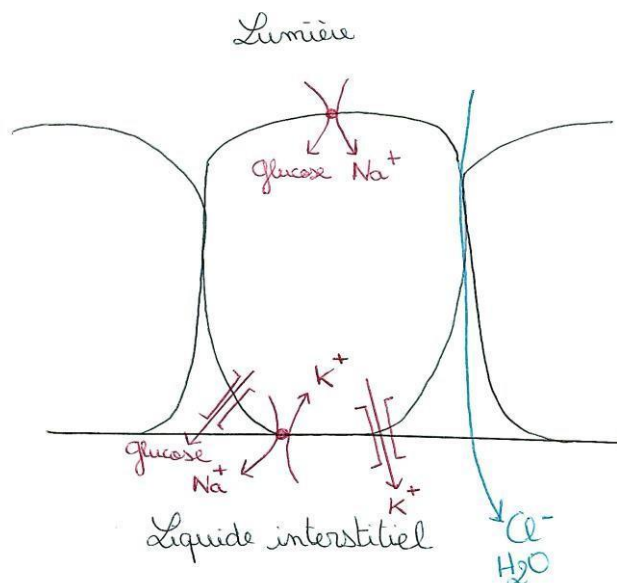 Lumière
Glucose Na+
K+
glucose
Na+
K+
Liquide interstitiel
Cl-
H2O